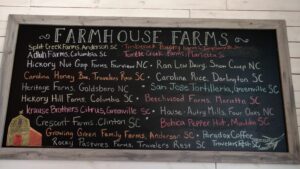 FARMHOUSE FARMS
Split Creek Farms, Anderson SC Timberock
Adluh Farms, Columbia SC Turtle Creek Farms, Marietta SC
Hickory Nut Gap Farms, Fairview NC • Ran Lew Dairy, Snow Camp NC
Carolina Honey Bee, Travelers Rest SC • Carolina Rice, Darlington SC
Heritage Farms, Goldsboro NC • San Jose Tortilleria, Greenville SC
Hickory Hill Farms, Columbia SC • Beechwood Farms, Marietta SC
Krause Brothers Citrus, Greenville SC • House-Autry Mills, Four Oaks NC
Crescent Farms, Clinton SC • Bohica Pepper Hut, Mauldin SC
Growing Green Family Farms, Anderson SC • Paradox Coffee
Rocky Pastures Farms, Travelers Rest SC Travelers Rest SC